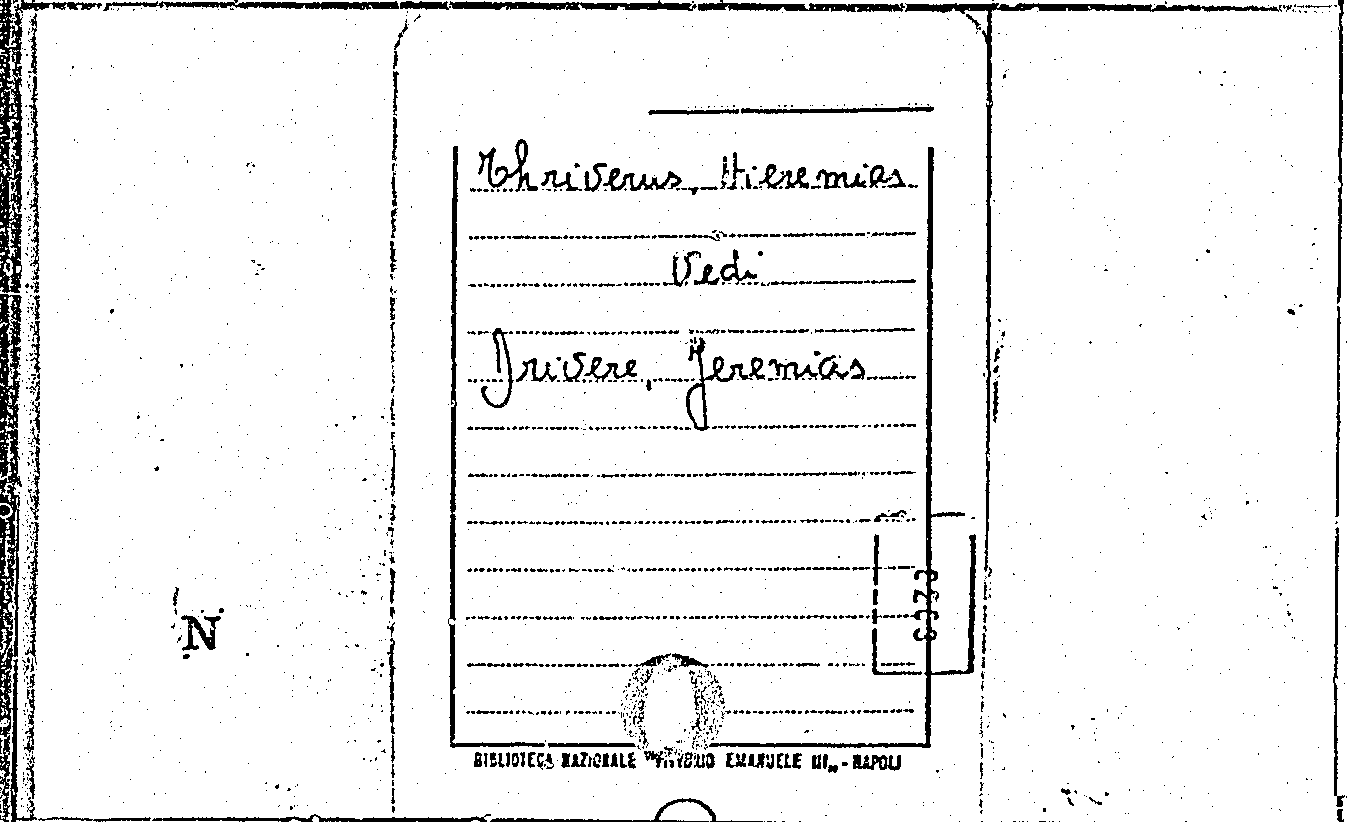 Thriverus, Hieremias
Vedi
Drivere, Jeremias
N
BIBLIOTECA NAZIONALE "VITTORIO EMANUELE III" - NAPOLI